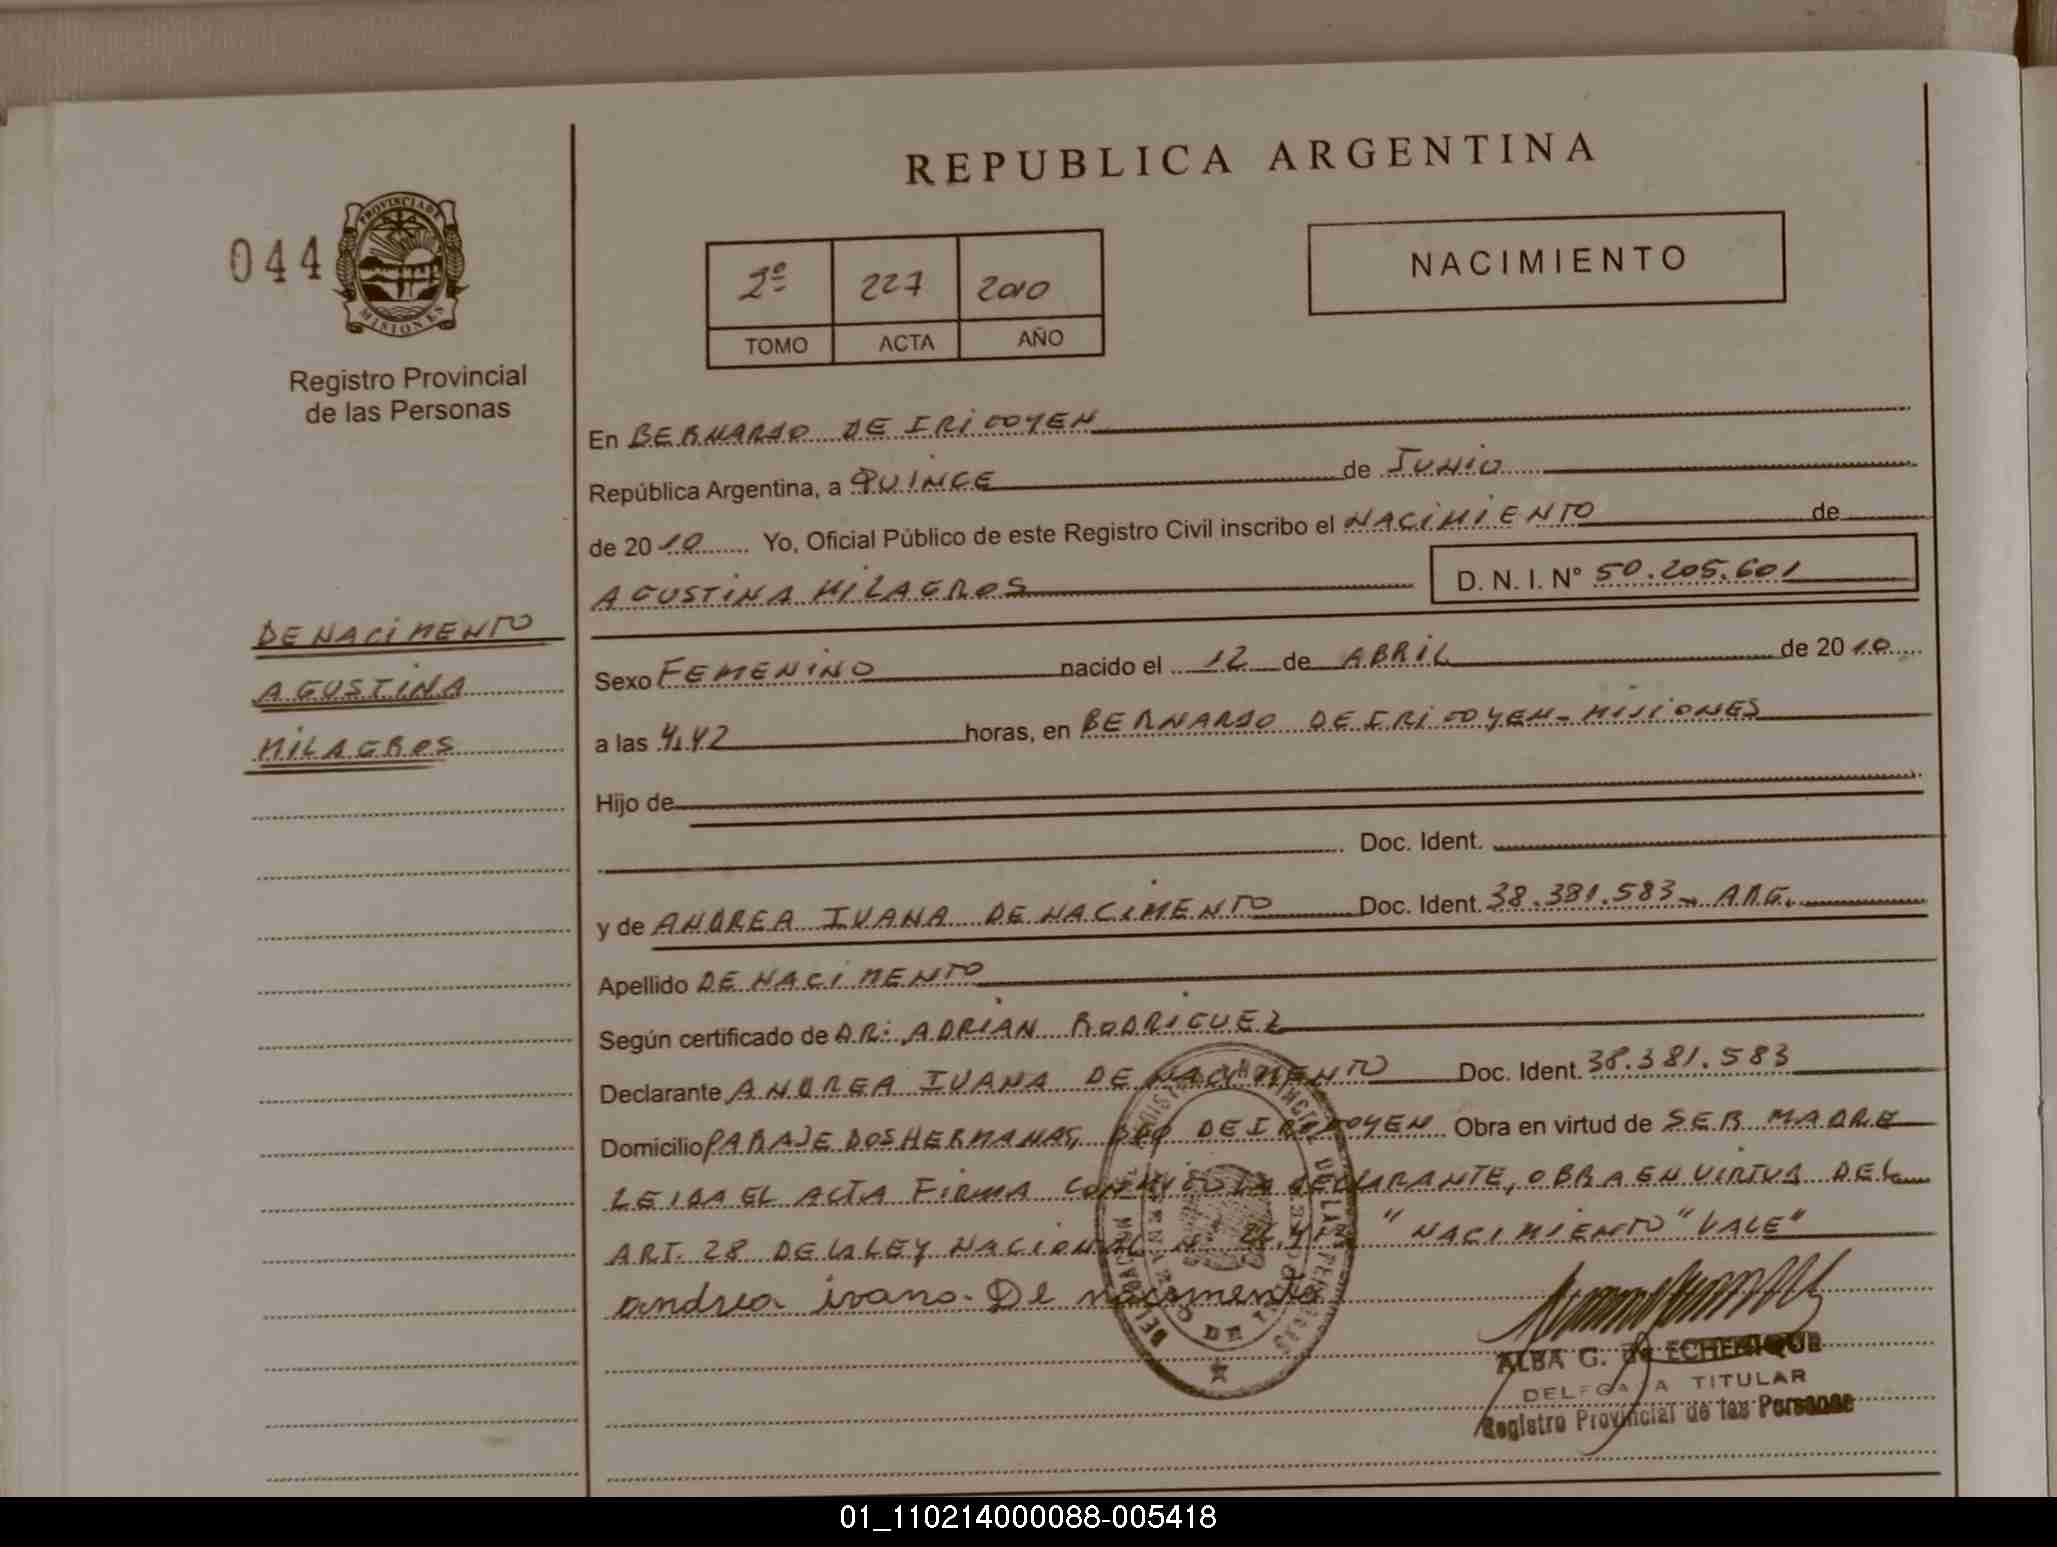 REPUBLICA ARGENTINA
044
PROVINCIA DE
MISIONES
Registro Provincial
de las Personas
2º 227 2010
TOMO ACTA AÑO
NACIMIENTO
En BERNARDO DE IRIGOYEN
República Argentina, a QUINCE de JUNIO
de 2010 Yo, Oficial Público de este Registro Civil inscribo el NACIMIENTO de
AGUSTINA MILAGROS D. N. I. N° 50.205.601
DE NACIMENTO
AGUSTINA
MILAGROS
Sexo FEMENINO nacido el 12 de ABRIL de 2010
a las 4,42 horas, en BERNARDO DE IRIGOYEN - MISIONES
Hijo de
Doc. Ident.
y de ANDREA IVANA DE NACIMENTO Doc. Ident. 38.381.583 - ARG.
Apellido DE NACIMENTO
Según certificado de DR: ADRIAN RODRIGUEZ
Declarante ANDREA IVANA DE NACIMENTO Doc. Ident. 38.381.583
Domicilio PARAJE DOS HERMANAS, BDO DE IRIGOYEN Obra en virtud de SER MADRE
LEIDA EL ACTA FIRMA CONMIGO LA DECLARANTE, OBRA EN VIRTUD DEL
ART. 28 DE LA LEY NACIONAL "NACIMIENTO" VALE"
andrea ivana. De nacimento
ALBA G. de ECHENIQUE
DELEGADA TITULAR
Registro Provincial de las Personas
01_110214000088-005418